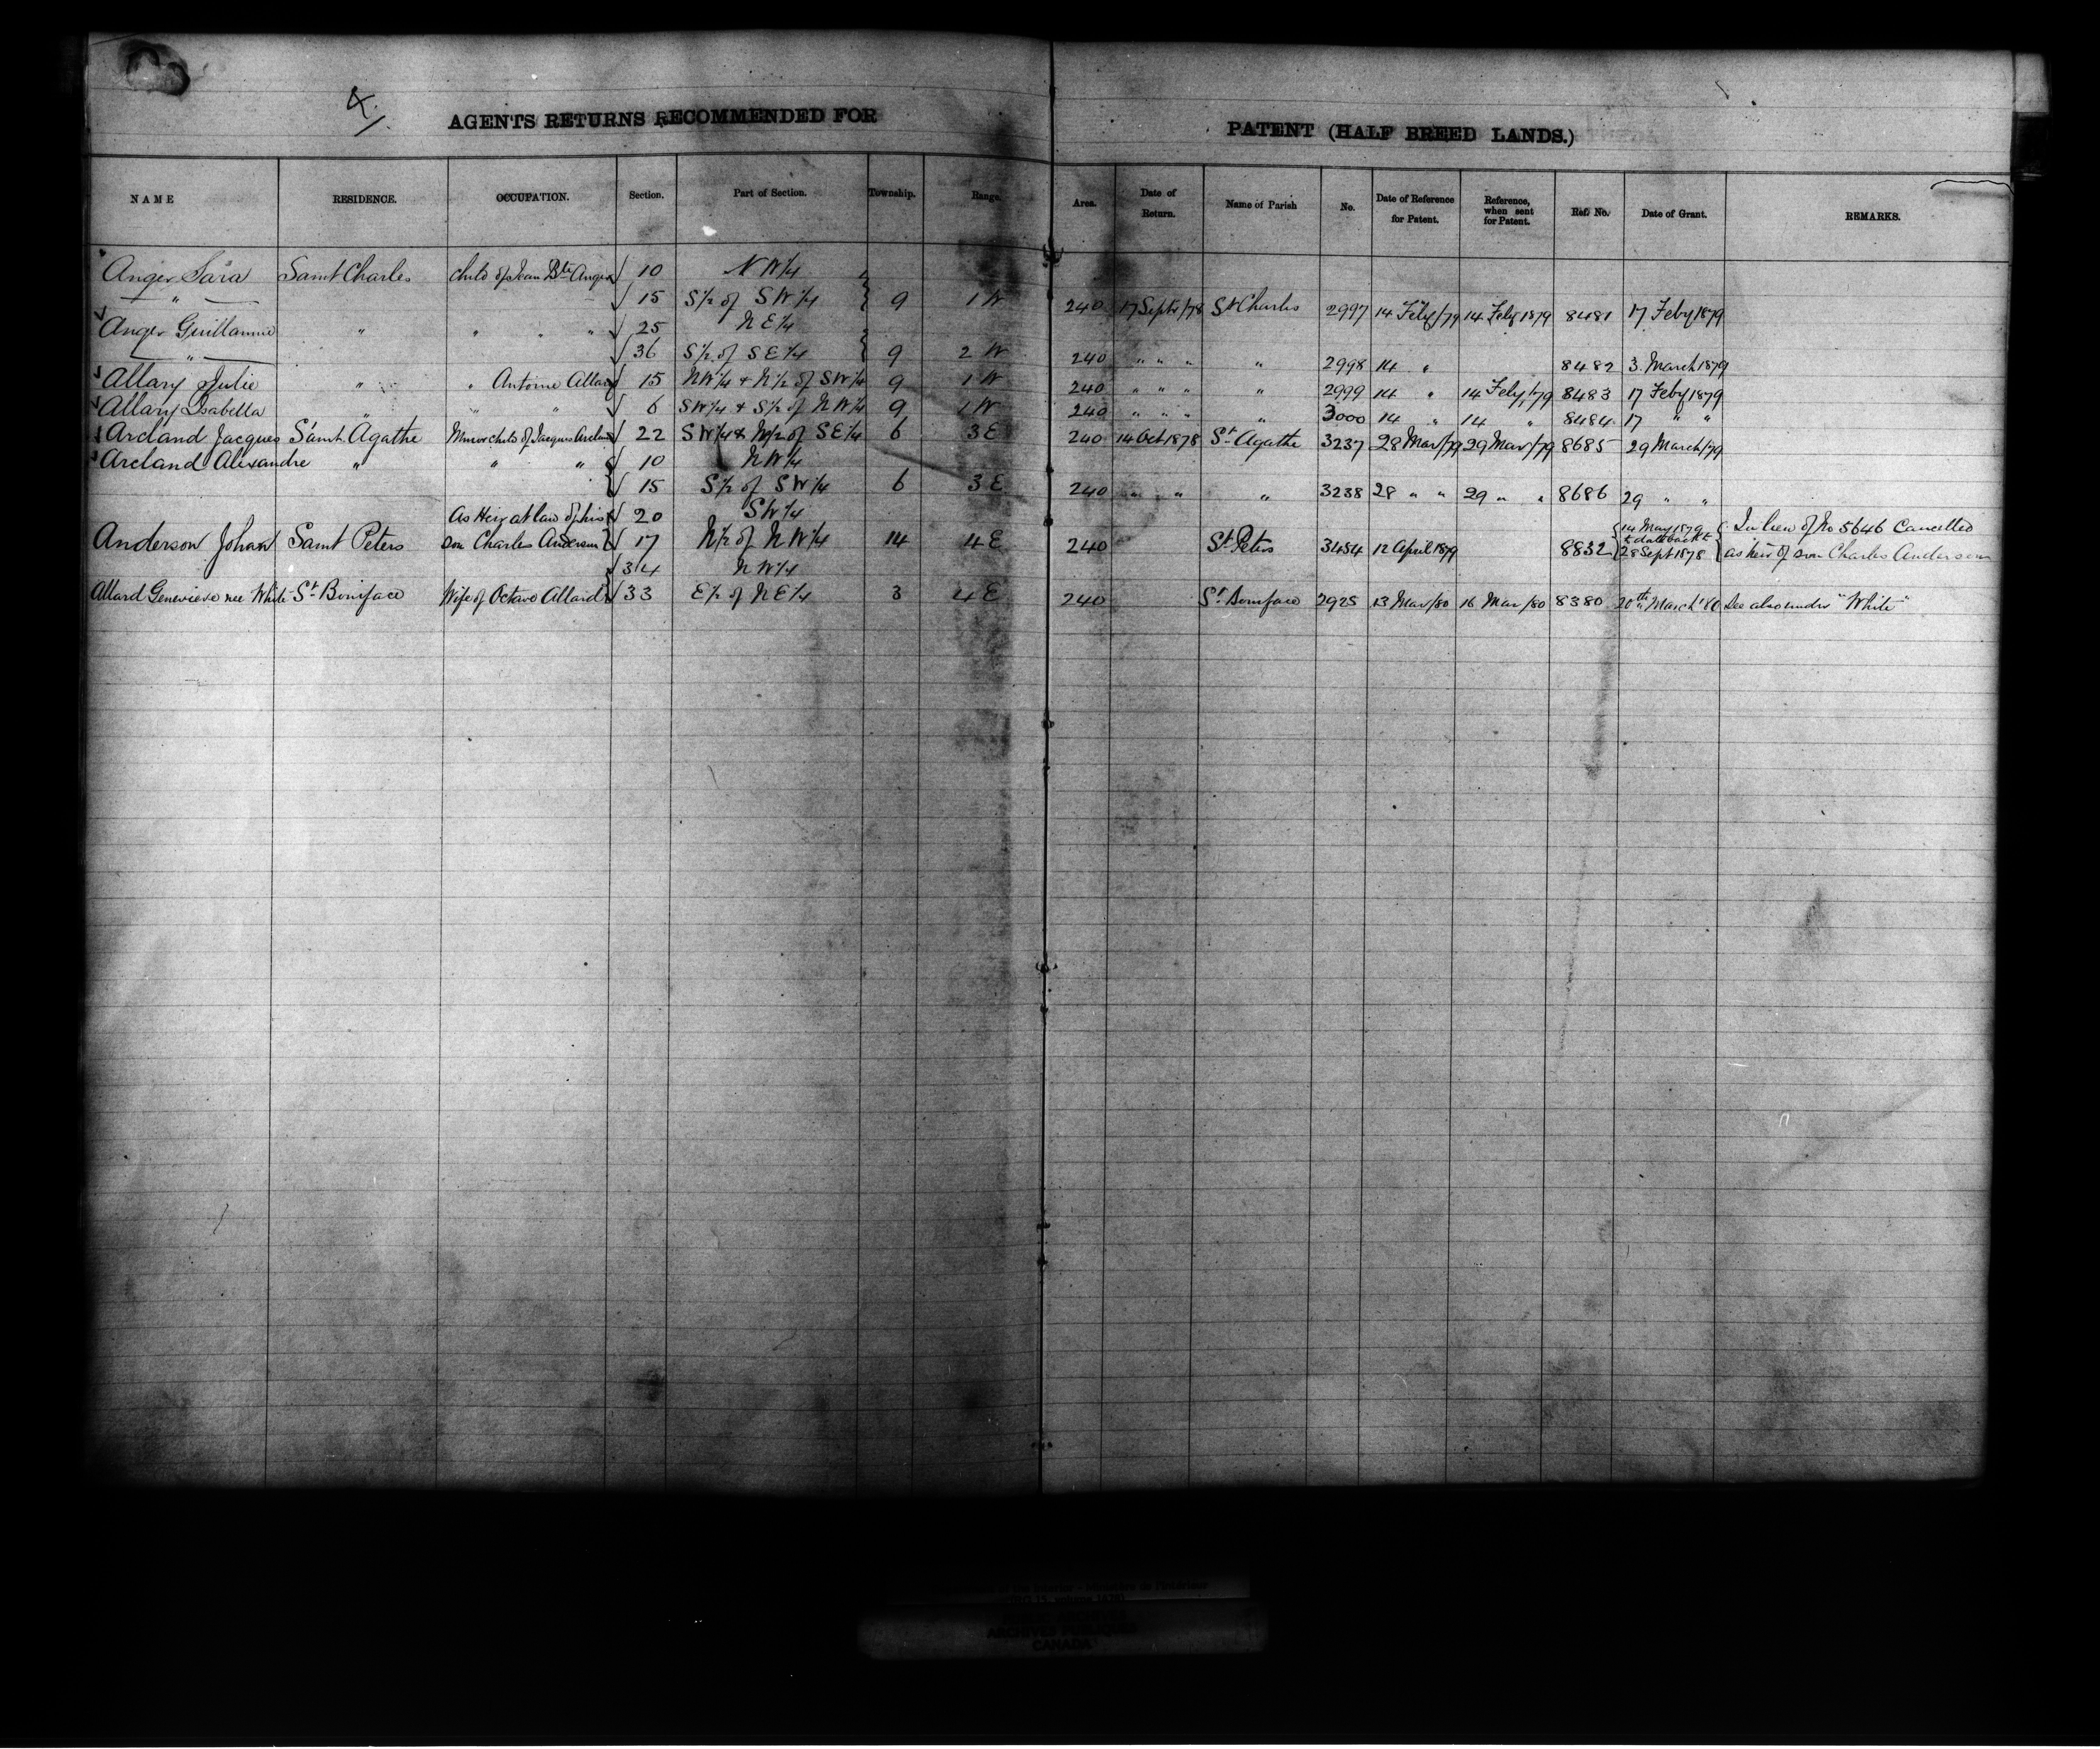 4/.
AGENTS RETURNS RECOMMENDED FOR PATENT (HALF BREED LANDS.)
NAME RESIDENCE. OCCUPATION. Section. Part of Section. Township. Range. Area. Date of Return. Name of Parish No. Date of Reference for Patent. Reference, when sent for Patent. Ref. No. Date of Grant. REMARKS.
Anger Sara Saint Charles child of Jean Bte Anger √ 10 N W 1/4
" √ 15 S 1/2 of S W 1/4 9 1 W 240 17 Septr/78 St Charles 2997 14 Feby/79 14 Feby 1879 8481 17 Feby 1879
Anger Guillaume " " " √ 25 N E 1/4
" √ 36 S 1/2 of S E 1/4 9 2 W 240 " " " " 2998 14 " 8482 3 March 1879
Allary Julie " " Antoine Allary 15 N W 1/4 & N 1/2 of S W 1/4 9 1 W 240 " " " " 2999 14 " 14 Feby/79 8483 17 Feby 1879
Allary Isabella " " " √ 6 S W 1/4 & S 1/2 of N W 1/4 9 1 W 240 " " " " 3000 14 " 14 " 8484 17 " "
Arcland Jacques Saint Agathe Minor child of Jacques Arcland √ 22 S W 1/4 & N 1/2 of S E 1/4 6 3 E 240 14 Oct 1878 St Agathe 3237 28 Mar/79 29 Mar/79 8685 29 March/79
Arcland Alexandre " " " √ 10 N W 1/4
√ 15 S 1/2 of S W 1/4 6 3 E 240 " " " 3238 28 " " 29 " " 8686 29 " "
As Heir at law of his √ 20 S W 1/4
Anderson Johan Saint Peters son Charles Anderson √ 17 N 1/2 of N W 1/4 14 4 E 240 St Peters 3454 12 April 1879 8832 14 May 1879 to date back to 28 Sept 1878 In lieu of No 5646 Cancelled as heir of son Charles Anderson
√ 34 N W 1/4
Allard Genevieve nee White St Boniface Wife of Octave Allard √ 33 E 1/2 of N E 1/4 3 4 E 240 St Boniface 2925 13 Mar/80 16 Mar/80 8380 20th March '80 See also under "White"
ARCHIVES PUBLIQUES
CANADA